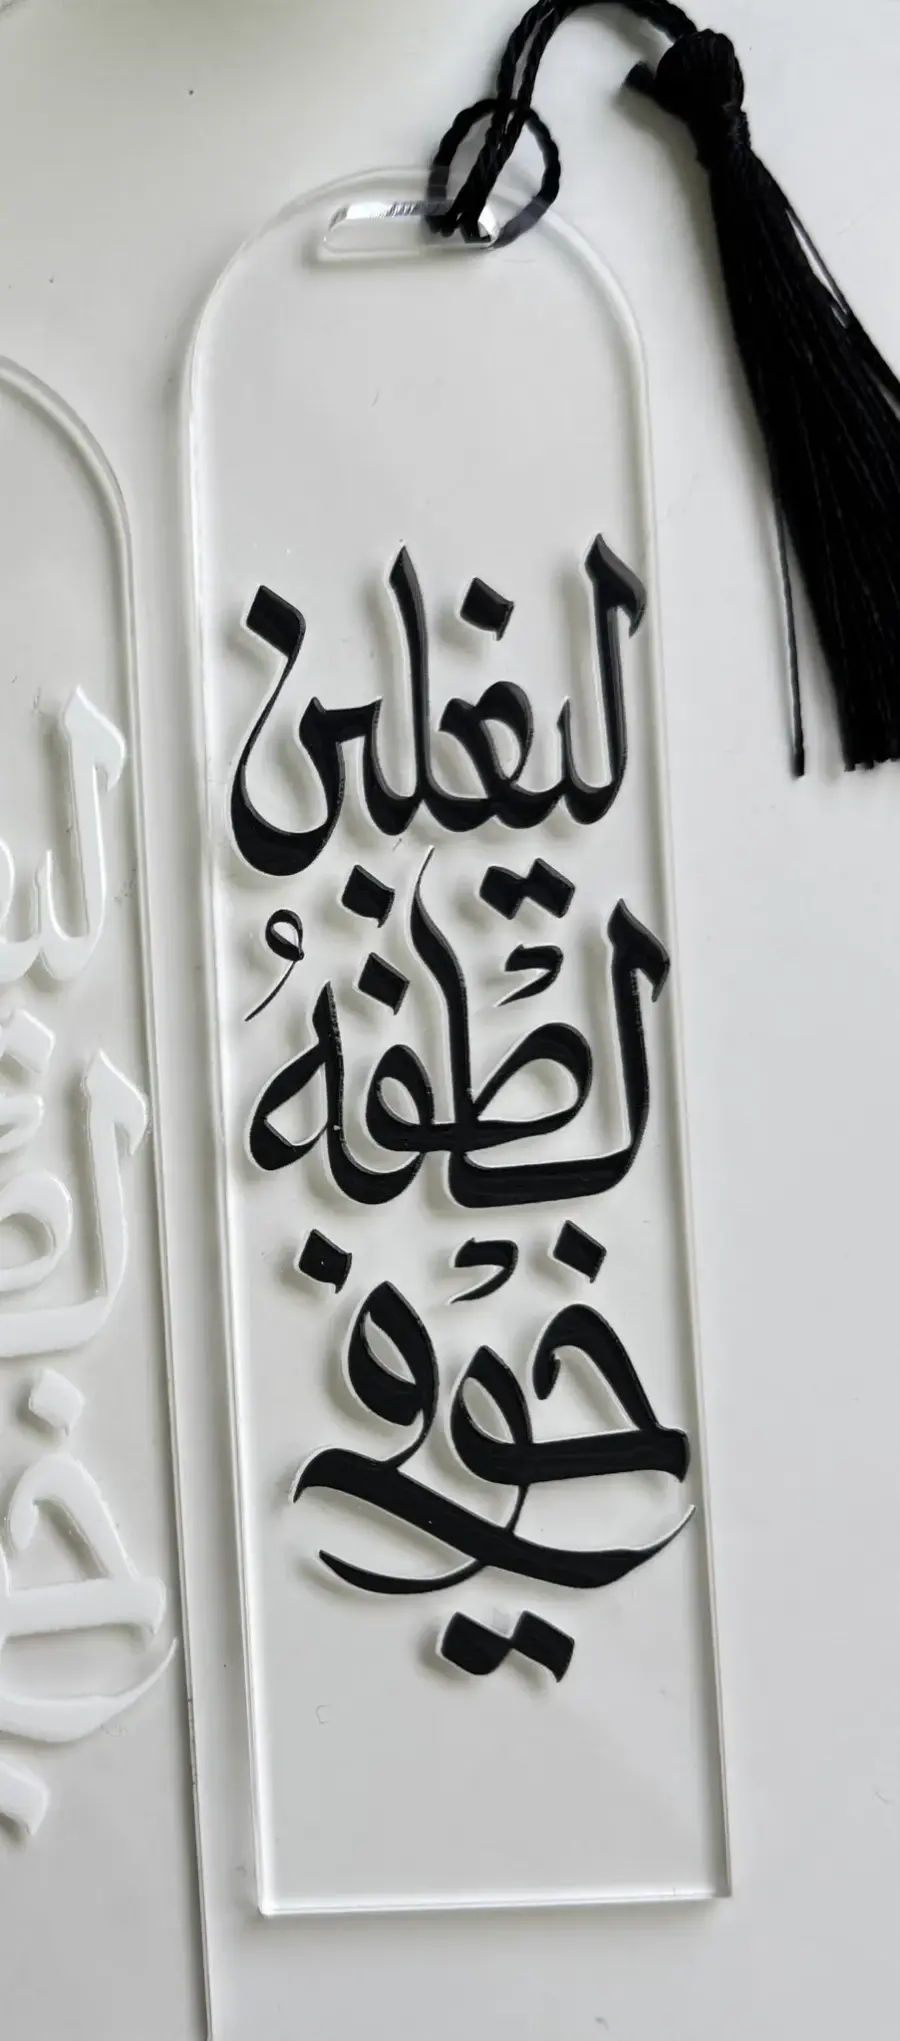 ليغلبن
لطفهُ
خوفي